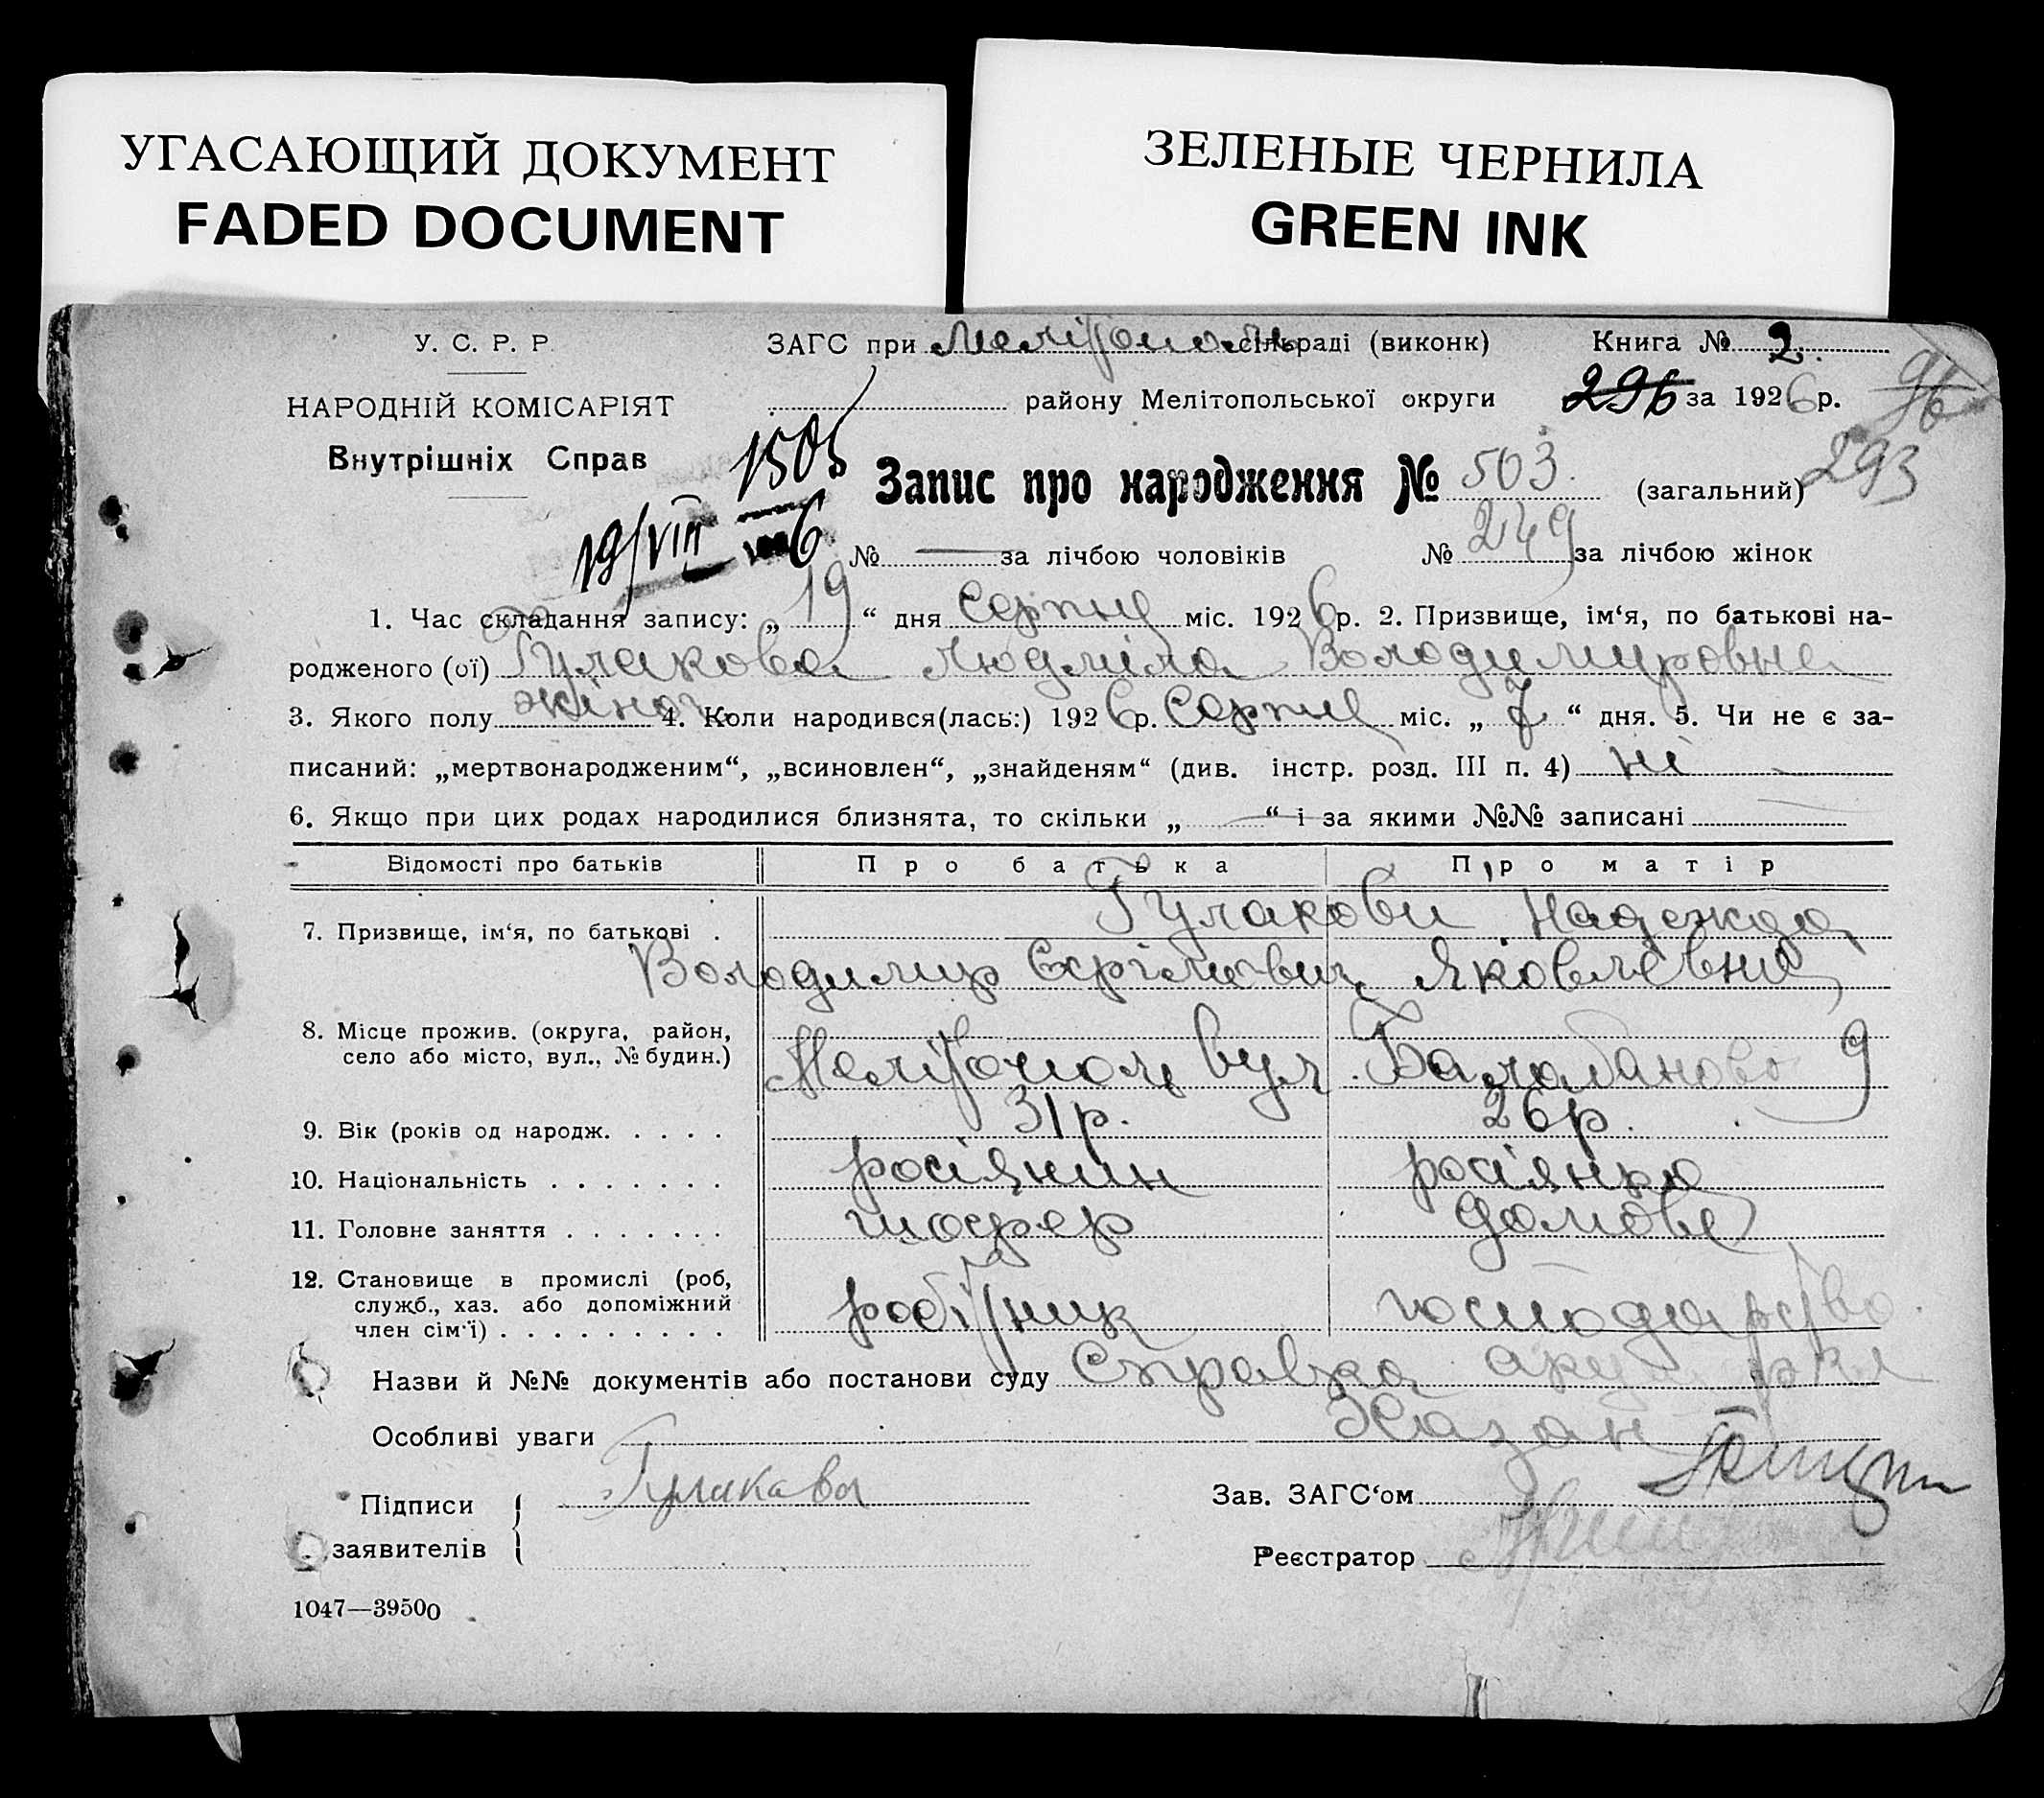 УГАСАЮЩИЙ ДОКУМЕНТ
FADED DOCUMENT
ЗЕЛЕНЫЕ ЧЕРНИЛА
GREEN INK
У. С. Р. Р.
НАРОДНІЙ КОМІСАРІЯТ
Внутрішніх Справ
ЗАГС при Мелітополь сільраді (виконк) Книга № 2.
району Мелітопольської округи 296 за 1926 р. 96
293
1505
19/VIII 6
Запис про народження № 503. (загальний)
№ — за лічбою чоловіків № 249 за лічбою жінок
1. Час складання запису: „ 19 “ дня серпня міс. 1926 р. 2. Призвище, ім‘я, по батькові на-
родженого (ої) Гулакова Людміла Володимировна
3. Якого полу жіноч. 4. Коли народився(лась:) 1926 р. Серпня міс. „ 7 “ дня. 5. Чи не є за-
писаний: „мертвонародженим“, „всиновлен“, „знайденям“ (див. інстр. розд. III п. 4) ні
6. Якщо при цих родах народилися близнята, то скільки „ — “ і за якими №№ записані
Відомості про батьків Про батька Про матір
7. Призвище, ім‘я, по батькові . Гулакови Надежда
Володимир Сергійович Яковлевна
8. Місце прожив. (округа, район,
село або місто, вул., № будин.) Мелітополь вул. Балабанова 9
9. Вік (років од народж. . . . . 31 р. 26 р.
10. Національність . . . . . . . росіянин росіянка
11. Головне заняття . . . . . . . шофер домове
12. Становище в промислі (роб,
служб., хаз. або допоміжний
член сім‘ї) . . . . . . . . . робітник господарство.
Назви й №№ документів або постанови суду Справка акушерки
Особливі уваги Хазан
Підписи Гулакова Зав. ЗАГС‘ом
заявителів Реєстратор
1047—39500